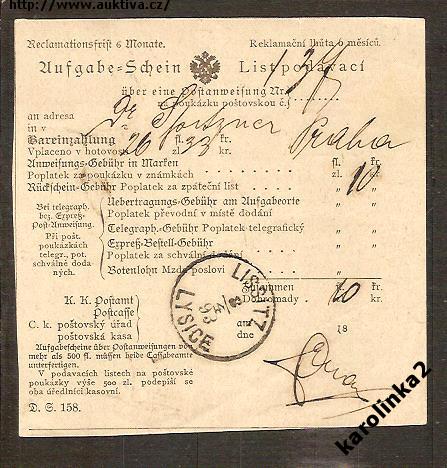 http://www.auktiva.cz/
Reclamationsfrist 6 Monate. Reklamační lhůta 6 měsíců.
Aufgabe=Schein List podávací
über eine Postanweisung Nr.
za poukázku poštovskou č.
an adresa
in v
Dr. Praha
Bareinzahlung fl. kr.
Vplaceno v hotovosti 26 zl. 33 kr.
Anweisungs-Gebühr in Marken fl. kr.
Poplatek za poukázku v známkách zl. 10 „
Rückschein-Gebühr Poplatek za zpáteční list „ „
Bei telegraph. bez. Expreß-Post-Anweisung.
Při pošt. poukázkách telegr., pot. schválně dodaných.
Uebertragungs-Gebühr am Aufgabeorte
Poplatek převodní v místě dodání „ „
Telegraph.-Gebühr Poplatek telegrafický „ „
Expreß-Bestell-Gebühr
Poplatek za schvální dodání „ „
Botenlohn Mzda poslovi „ „
Zusammen fl. kr.
Dohromady zl. 10 kr.
LISSITZ
LYSICE
K. K. Postamt
Postcasse
C. k. poštovský úřad
poštovská kasa
am
dne 18
Aufgabescheine über Postanweisungen von
mehr als 500 fl. müssen beide Cassabeamte
unterfertigen.
V podávacích listech na poštovské
poukázky výše 500 zl. podepíší se
oba úředlníci kasovní.
D. S. 158.
karolinka2